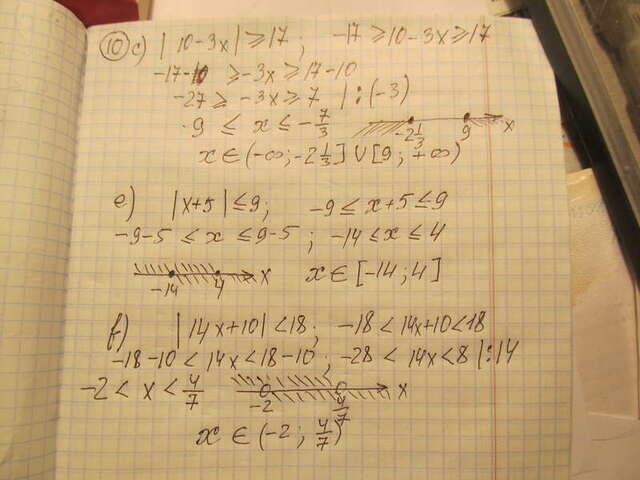 ⑩ c) |10-3x| ≥ 17; -17 ≥ 10-3x ≥ 17
-17-10 ≥ -3x ≥ 17-10
-27 ≥ -3x ≥ 7 |:(-3)
9 ≤ x ≤ -7/3
-2 1/3 9 x
x ∈ (-∞; -2 1/3] ∪ [9; +∞)
e) |x+5| ≤ 9; -9 ≤ x+5 ≤ 9
-9-5 ≤ x ≤ 9-5; -14 ≤ x ≤ 4
-14 4 x x ∈ [-14; 4]
f) |14x+10| < 18; -18 < 14x+10 < 18
-18-10 < 14x < 18-10; -28 < 14x < 8 |:14
-2 < x < 4/7
-2 4/7 x
x ∈ (-2; 4/7)